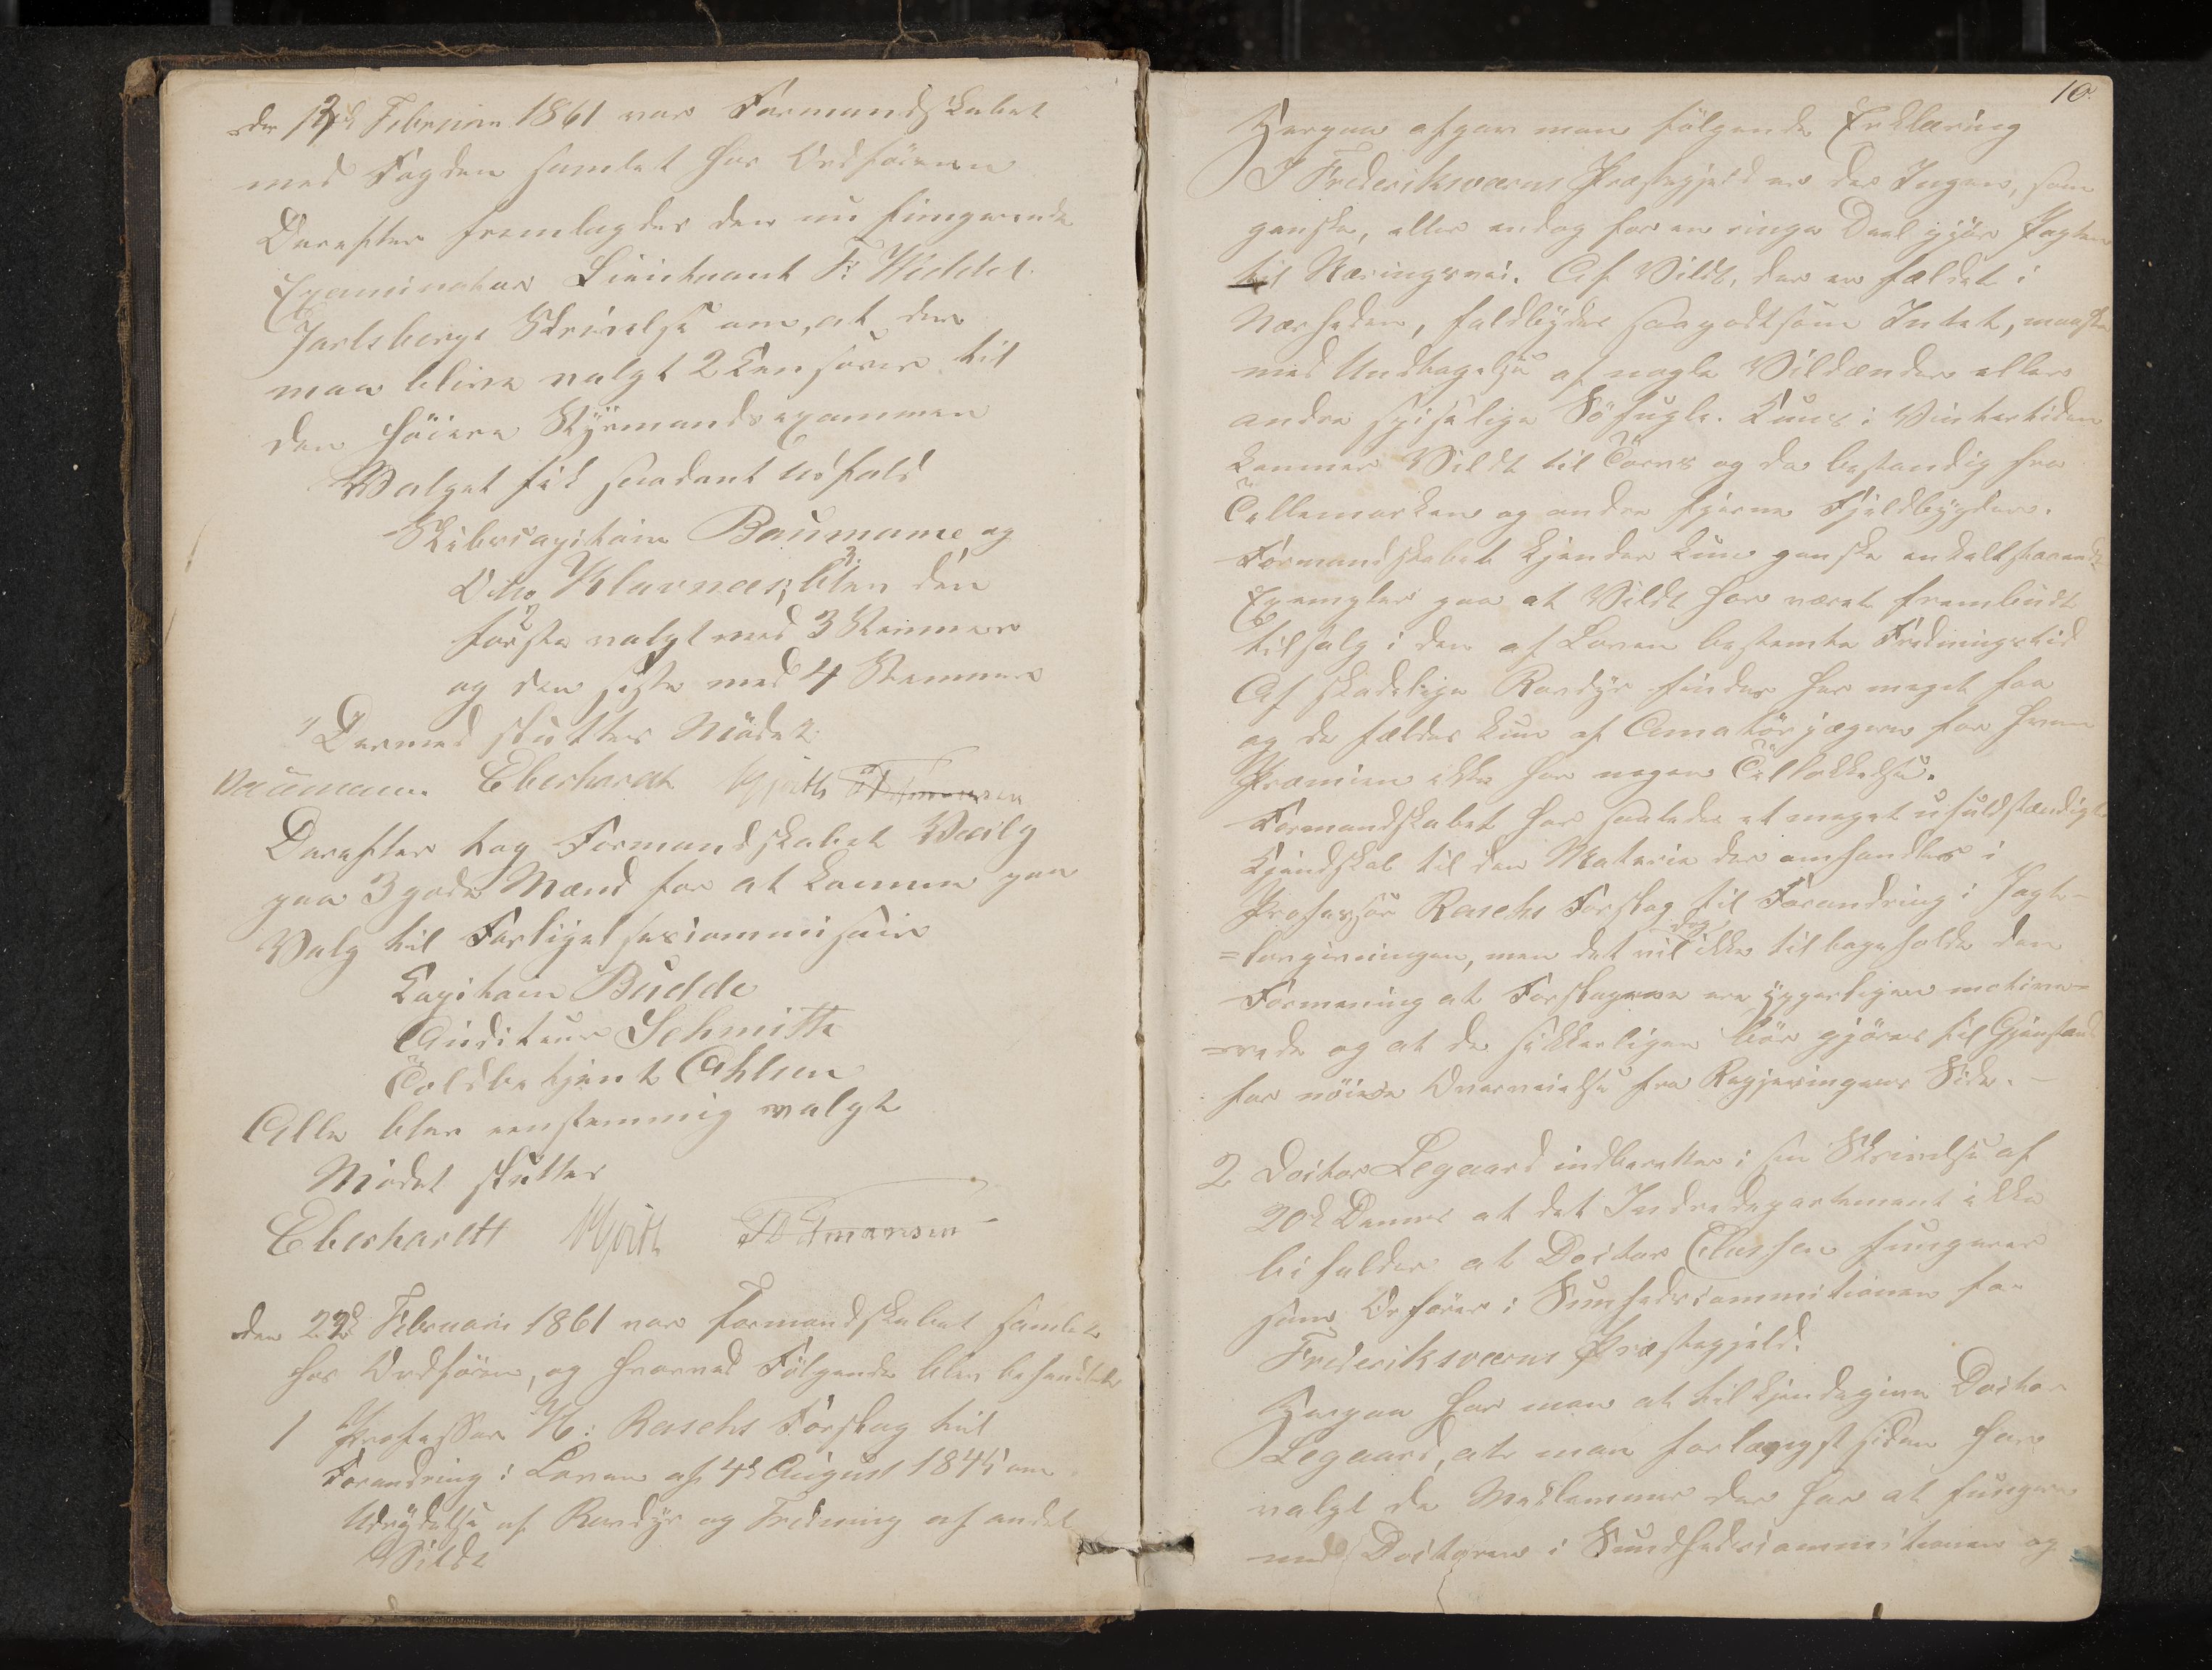 den 13de Februar 1861 var Formandskabet
med Fogden samlet hos Ordføreren
Derefter fremlagdes den nu fungerende
Examinators Lieutenant F: Weddel
Jarlsbergs Skrivelse om, at der
maa blive valgt 2 Censorer til
den höiere Styrmandsexammen
Valget fik saadant Udfald
Skibscapitain Baumann og
Otto Klavnæs, blev den
første valgt med 3 Stemmer
og den siste med 4 Stemmer
Dermed sluttes Mödet
Baumann. Eberhardt Hjorth
Derefter tog Formandskabet Valg
paa 3 gode Mænd for at komme paa
Valg til Forligelsescommisair
Capitain Budde
Auditeur Schmith
Toldbetjent Ahlsen
Alle blev eenstemmig valgt
Mödet sluttes
Eberhardt Hjorth
den 22de Februari 1861 var Formandskabet samlet
hos Ordføren, og hvorved Fölgende blev behandlet
1 Professor H: Raschs Forslag til
Forandring i Loven af 4de August 1845 om
Udrydelse af Rovdyr og Fredning af andet
Vildt
10.
Herpaa afgav man fölgende Erklæring
I Frederiksværns Præstegjeld er der Ingen, som
ganske, eller endog for en ringe Deel gjör Jagten
til Næringsvei. Af Vildt, der er fældet i
Nærheden, faldbydes saagodtsom Intet, maaske
med Undtagelse af nogle Vildænder eller
andre spiselige Söfugle. Kuns i Vintertiden
kommer Vildt til Torvs og da bestandig fra
Tellemarken og andre fjerne Fjeldbygder.
Formandskabet kjender kun ganske enkeltstaaende
Exempler paa at Vildt har været frembudt
tilsalg i den af Loven bestemte Fredningstid
Af skadelige Rovdyr findes her meget faa
og de fældes kun af Amatörjægere for hvem
Præmien ikke har nogen Tillokkelse.
Formandskabet har saaledes et meget ufuldstændigt
Kjendskab til den Materie der omhandles i
Professor Raschs Forslag til Forandring i Jagt-
=lovgivningen, men det vil dog ikke tilbageholde den
Formening at Forslagene ere ypperligen motive=
=rede og at de sikkerligen bör gjöres til Gjenstand
for nöiere Overveielse fra Regjeringens Side. –
2 Doctor Legaard indberetter i sin Skrivelse af
20de Dennes at det Indredepartement ikke
bifalder at Doctor Clussen fungerer
som Orförer i Sunhedscommitionen for
Frederiksværns Præstegjeld.
Herpaa har man at tilkjendegive Doctor
Legaard, at man forlængst siden har
valgt de Medlemmer der har at fungere
med Doctoren i Sundhedscommitionen og